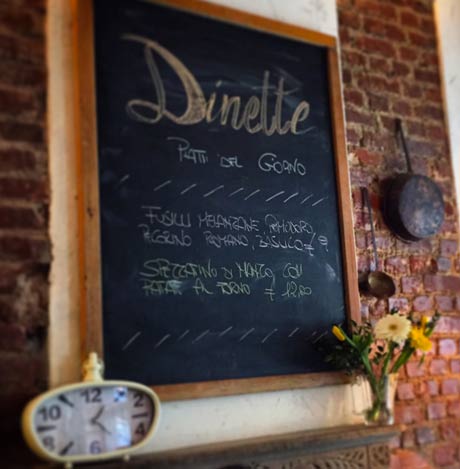 Dinette
PIATTI DEL GIORNO
FUSILLI MELANZANE POMODORO,
PECORINO ROMANO, BASILICO 7 9
SPEZZATINO DI MANZO CON
PATATE AL FORNO 7 12,80
12
2
3
4